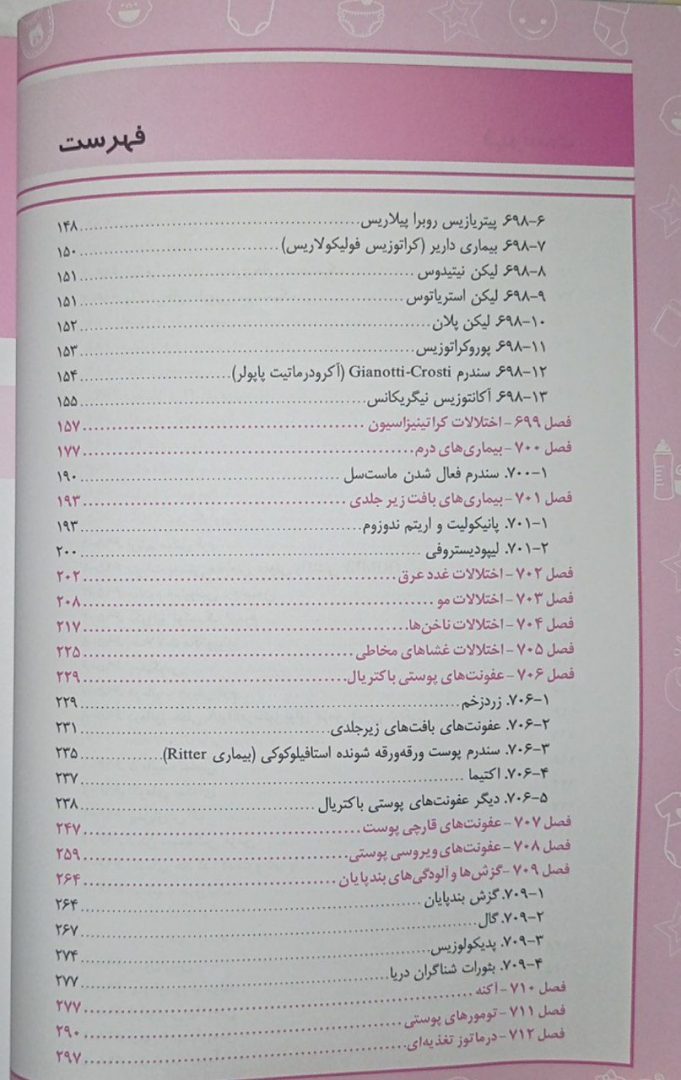 فهرست
۶۹۸-۶. پیتریازیس روبرا پیلاریس ۱۴۸
۶۹۸-۷. بیماری داریر (کراتوزیس فولیکولاریس) ۱۵۰
۶۹۸-۸. لیکن نیتیدوس ۱۵۱
۶۹۸-۹. لیکن استریاتوس ۱۵۱
۶۹۸-۱۰. لیکن پلان ۱۵۲
۶۹۸-۱۱. پوروکراتوزیس ۱۵۳
۶۹۸-۱۲. سندرم Gianotti-Crosti (آکرودرماتیت پاپولر) ۱۵۴
۶۹۸-۱۳. آکانتوزیس نیگریکانس ۱۵۵
فصل ۶۹۹- اختلالات کراتینیزاسیون ۱۵۷
فصل ۷۰۰- بیماری‌های درم ۱۷۷
۷۰۰-۱. سندرم فعال شدن ماست‌سل ۱۹۰
فصل ۷۰۱- بیماری‌های بافت زیر جلدی ۱۹۳
۷۰۱-۱. پانیکولیت و اریتم ندوزوم ۱۹۳
۷۰۱-۲. لیپودیستروفی ۲۰۰
فصل ۷۰۲- اختلالات غدد عرق ۲۰۲
فصل ۷۰۳- اختلالات مو ۲۰۸
فصل ۷۰۴- اختلالات ناخن‌ها ۲۱۷
فصل ۷۰۵- اختلالات غشاهای مخاطی ۲۲۵
فصل ۷۰۶- عفونت‌های پوستی باکتریال ۲۲۹
۷۰۶-۱. زردزخم ۲۲۹
۷۰۶-۲. عفونت‌های بافت‌های زیرجلدی ۲۳۱
۷۰۶-۳. سندرم پوست ورقه‌ورقه شونده استافیلوکوکی (بیماری Ritter) ۲۳۵
۷۰۶-۴. اکتیما ۲۳۷
۷۰۶-۵. دیگر عفونت‌های پوستی باکتریال ۲۳۸
فصل ۷۰۷- عفونت‌های قارچی پوست ۲۴۷
فصل ۷۰۸- عفونت‌های ویروسی پوستی ۲۵۹
فصل ۷۰۹- گزش‌ها و آلودگی‌های بندپایان ۲۶۴
۷۰۹-۱. گزش بندپایان ۲۶۴
۷۰۹-۲. گال ۲۶۷
۷۰۹-۳. پدیکولوزیس ۲۷۴
۷۰۹-۴. بثورات شناگران دریا ۲۷۷
فصل ۷۱۰- آکنه ۲۷۷
فصل ۷۱۱- تومورهای پوستی ۲۹۰
فصل ۷۱۲- درماتوز تغذیه‌ای ۲۹۷